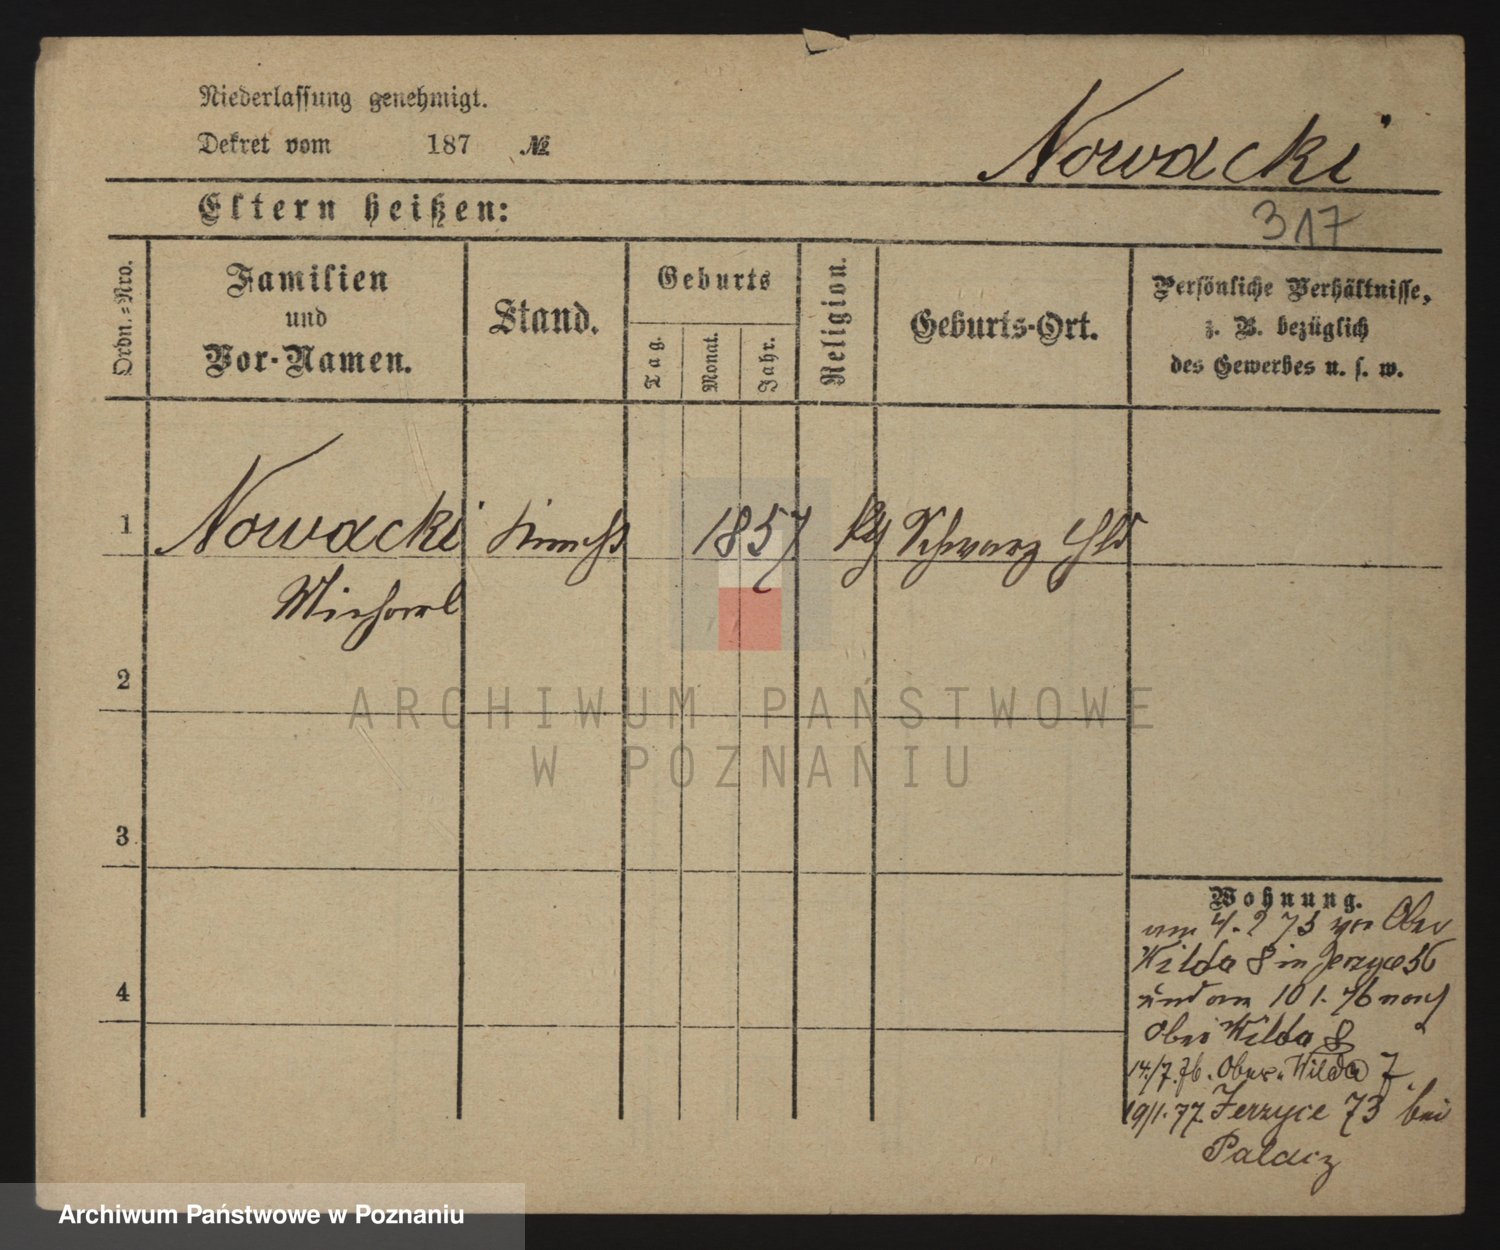 Niederlassung genehmigt.
Dekret vom 187 №
Nowacki
Eltern heißen:
317
Ordn.-Nro.
Familien
und
Vor-Namen.
Stand.
Geburts
Tag.
Monat.
Jahr.
Religion.
Geburts-Ort.
Persönliche Verhältnisse,
z. B. bezüglich
des Gewerbes u. s. w.
1
Nowacki Knecht 1857 Schwarz
Michael
2
ARCHIWUM PAŃSTWOWE
W POZNANIU
3
Wohnung.
am 4. 2 75 von Ober
Wilda 8 in Jerzyce 56
4
und am 10 1. 76 nach
Ober Wilda 8
14./7. 76. Ober-Wilda 7
19/1. 77. Jerzyce 73 bei
Palacz
Archiwum Państwowe w Poznaniu